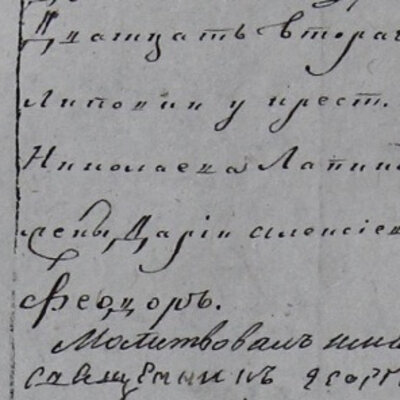 Двадцать втораг
Липокии у крест.
Николаева Лапин
жены Дарiи алексiе
Ѳеодоръ.
Молитвовалъ
священникъ Георг